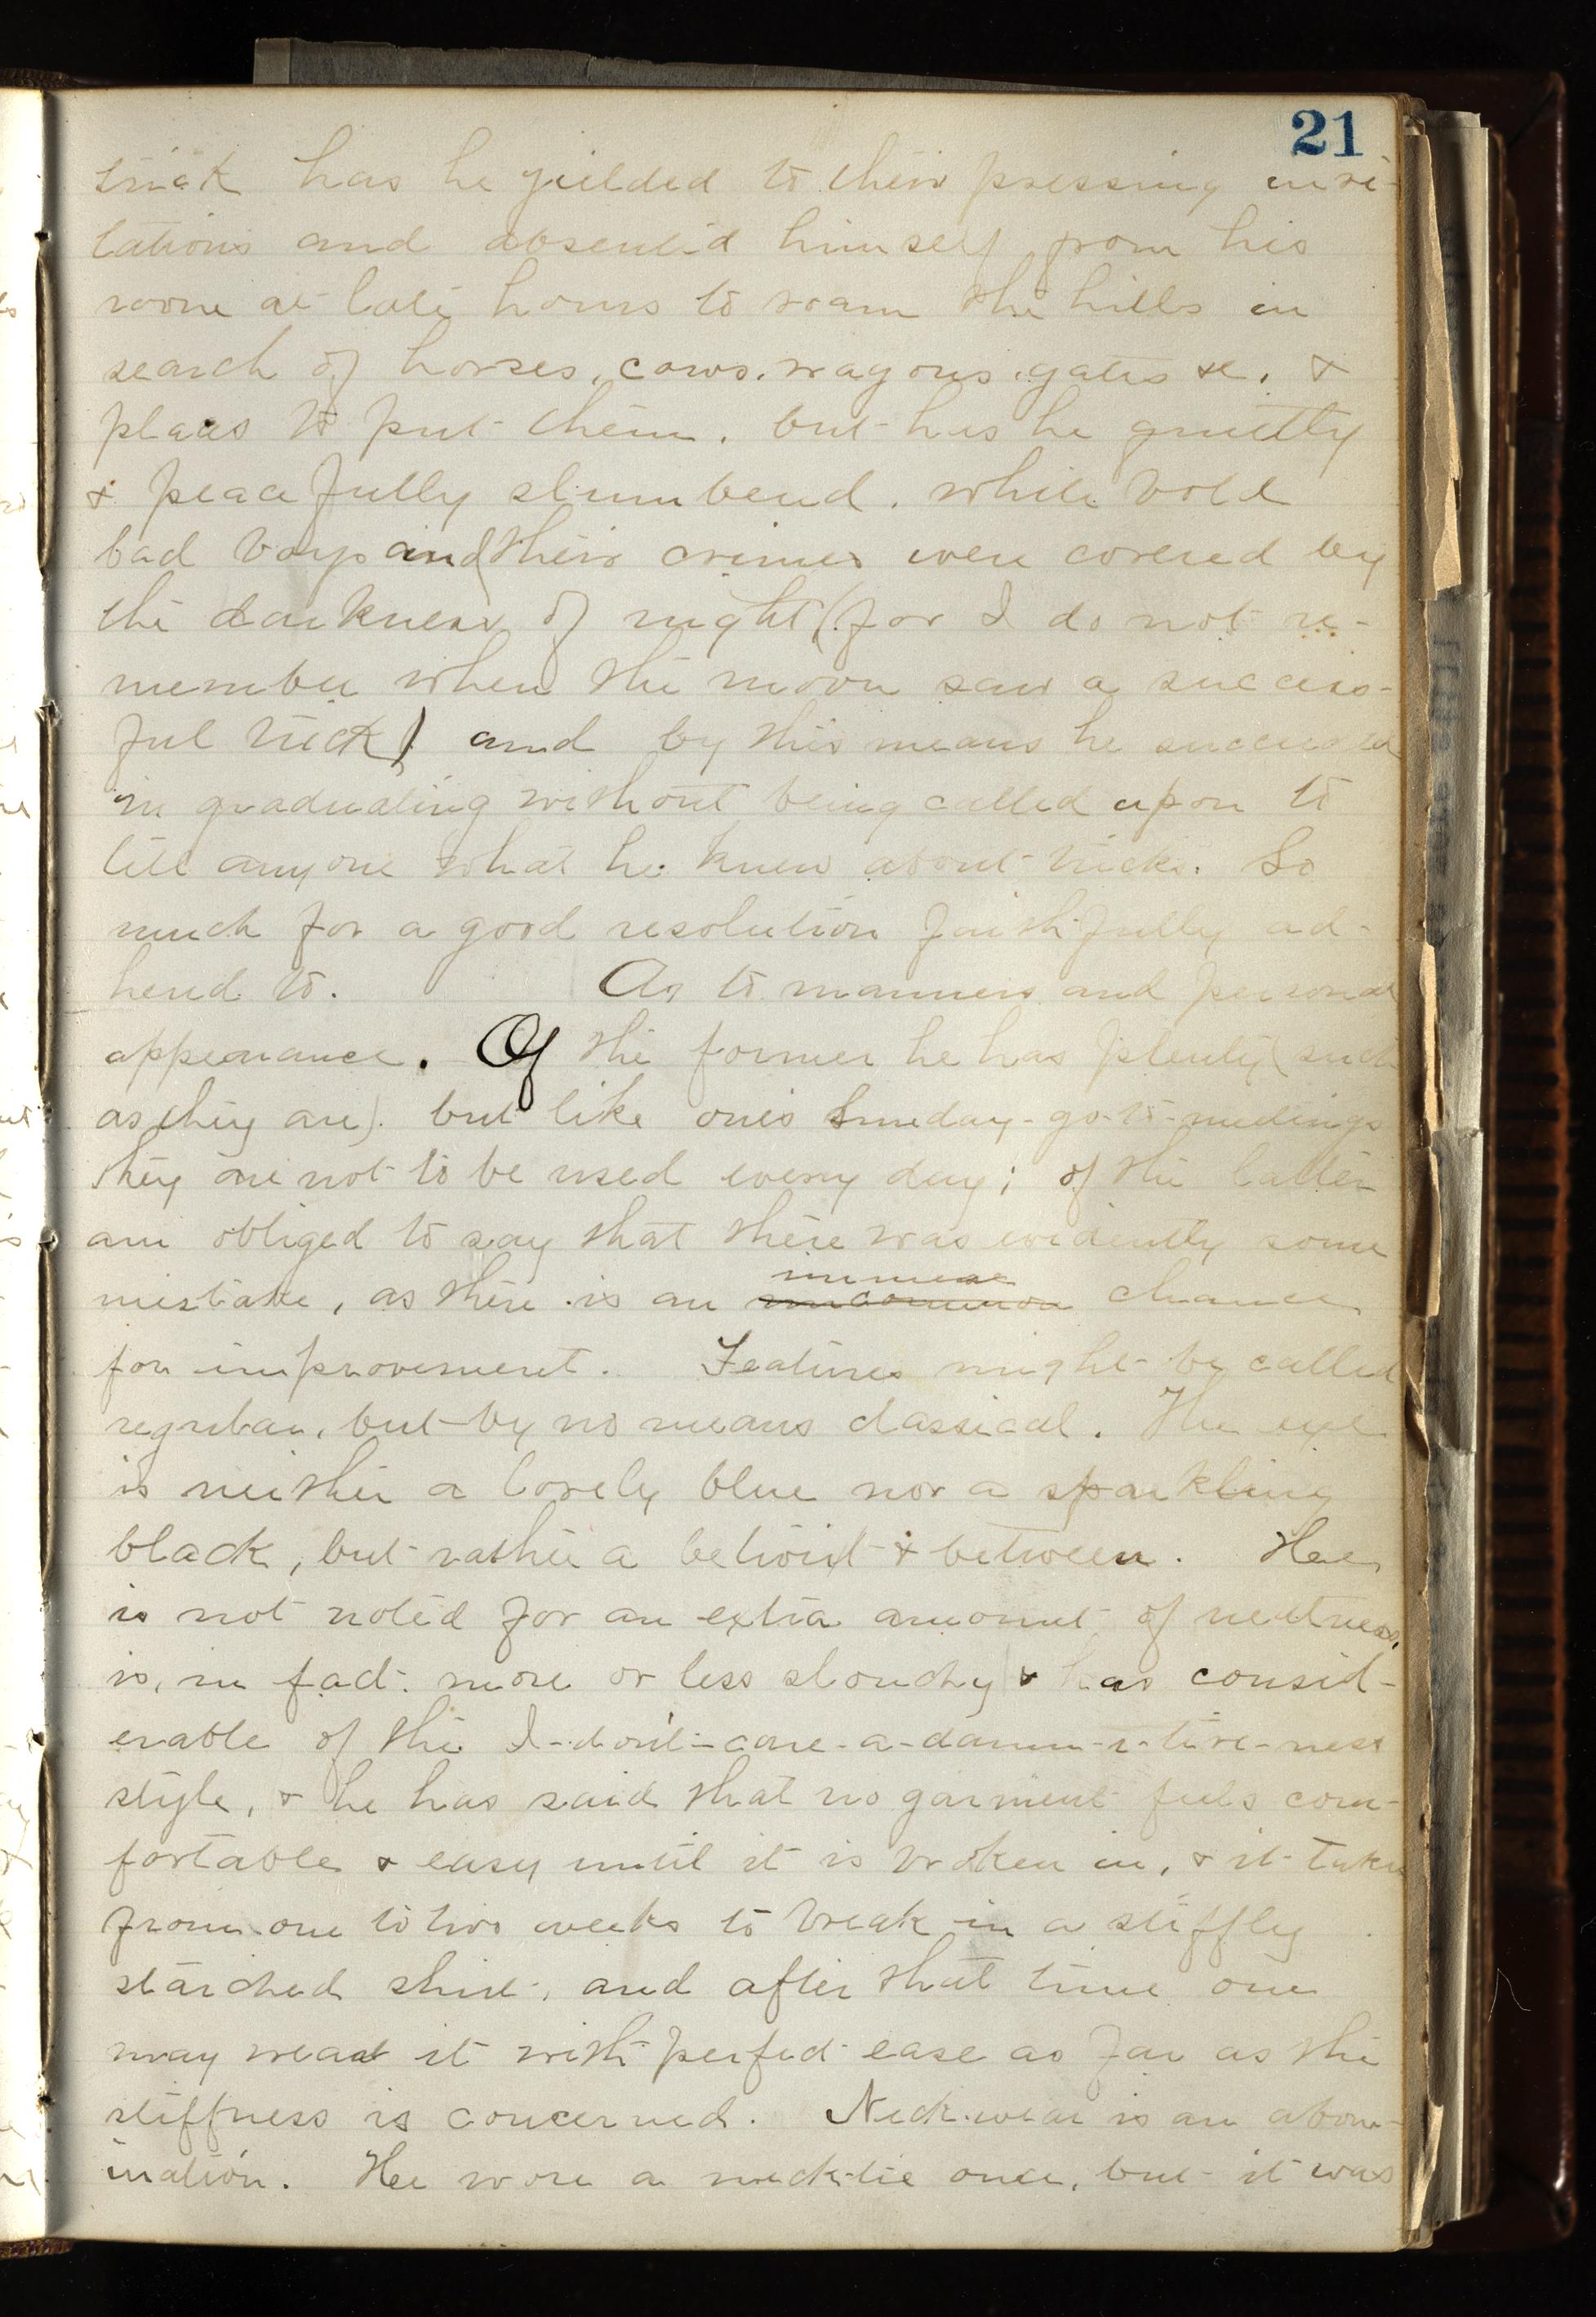 21
trick has he yielded to their pressing invi-
tations and absented himself from his
room at late hours to roam the hills in
search of horses, cows, wagons, gates &c. &
places to put them, but has he quietly
& peacefully slumbered, while bold
bad boys and their crimes were covered by
the darkness of night (for I do not re-
member when the moon saw a success-
ful trick) and by this means he succeeded
in graduating without being called upon to
tell anyone what he knew about tricks. So
much for a good resolution faithfully ad-
hered to. As to manners and personal
appearance. Of the former he has plenty (such
as they are), but like one's Sunday-go-to-meetings
they are not to be used every day; of the latter
am obliged to say that there was evidently some
mistake, as there is an immense uncommon chance
for improvement. Features might be called
regular, but by no means classical. The eye
is neither a lovely blue nor a sparkling
black, but rather a betwixt & between. Hee
is not noted for an extra amount of neatness,
is, in fact, more or less slouchy & has consid-
erable of the I-don't-care-a-damn-i-tive-ness
style, & he has said that no garment feels com-
fortable & easy until it is broken in, & it takes
from one to two weeks to break in a stiffly
starched shirt, and after that time one
may wear it with perfect ease as far as the
stiffness is concerned. Neck-wear is an abom-
ination. Hee wore a neck-tie once, but it was